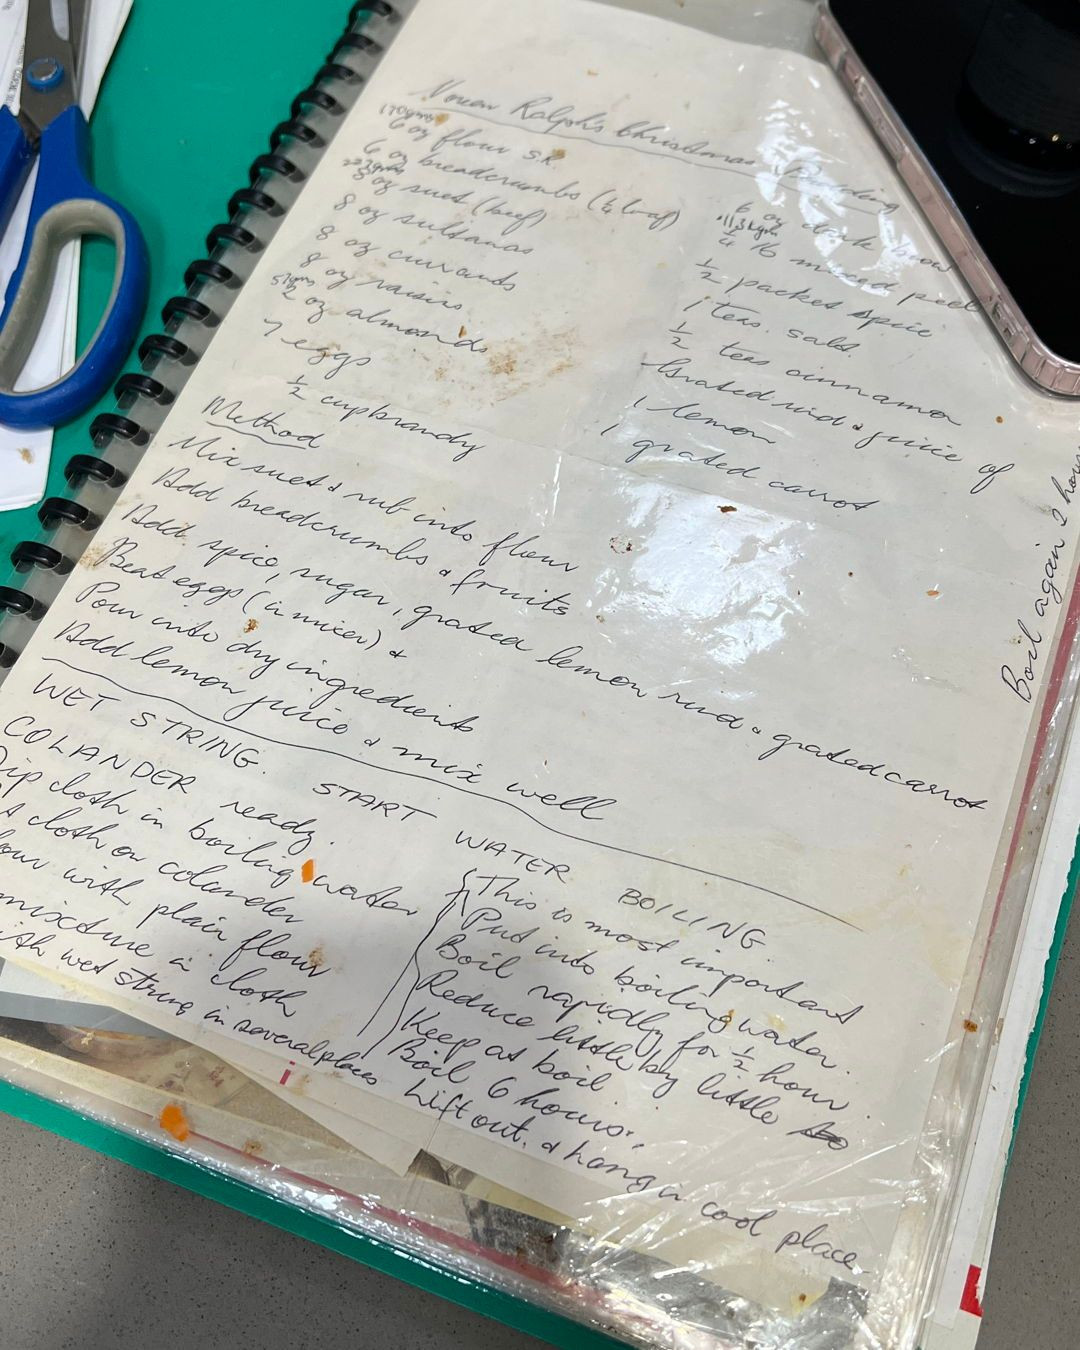 Ralph's Christmas Pudding
170gms
6 oz flour SR
6 oz breadcrumbs (¼ loaf)
8 oz suet (beef)
8 oz sultanas
8 oz currants
8 oz raisins
57gms
2 oz almonds
7 eggs
½ cup brandy
6 oz dark brow
.113kgm
¼ lb mixed peel
½ packet spice
1 teas. salt.
½ teas cinnamon
Grated rind & juice of
1 lemon
1 grated carrot
Method
Mix suet & rub into flour
Add breadcrumbs & fruits
Add spice, sugar, grated lemon rind & grated carrot
Beat eggs (in mixer) &
Pour into dry ingredients
Add lemon juice & mix well
WET STRING. START WATER BOILING
COLANDER ready.
Dip cloth in boiling water
cloth on colander
with plain flour
mixture in cloth
with wet string in several places
This is most important
Put into boiling water.
Boil rapidly for ½ hour.
Reduce little by little
Keep at boil
Boil 6 hours.
Lift out. & hang in cool place
Boil again 2 hou